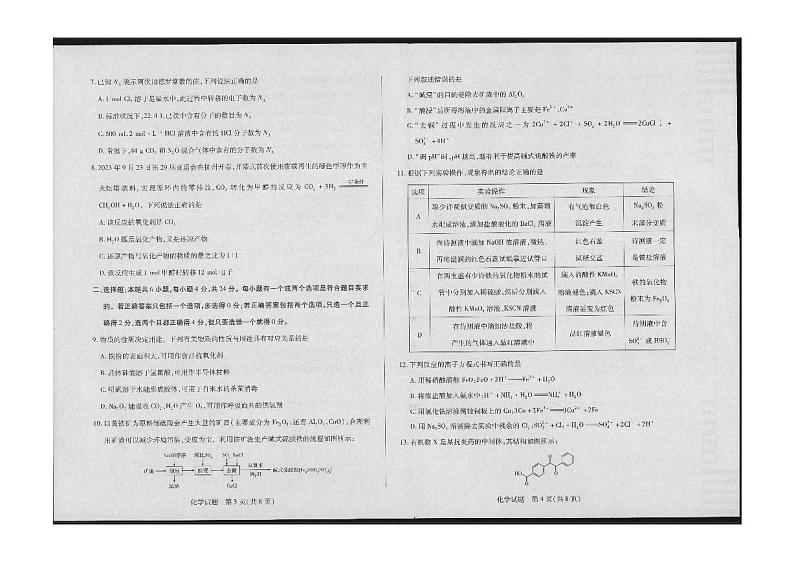 7. 已知 Nₐ 表示阿伏加德罗常数的值,下列说法正确的是
A. 1 mol Cl₂ 溶于足量水中,此过程中转移的电子数为 Nₐ
B. 标准状况下,22.4 L 己烷中含有分子的数目为 Nₐ
C. 500 mL 2 mol·L⁻¹ HCl 溶液中含有的 HCl 分子数为 Nₐ
D. 常温下,44 g CO₂ 和 N₂O 混合气体中含有的分子数为 Nₐ
8. 2023 年 9 月 23 日第 29 届亚运会在杭州开幕,开幕式首次使用废碳再生的绿色甲醇作为主
火炬塔燃料,实现循环内的零排放,CO₂ 转化为甲醇的反应为 CO₂ + 3H₂ 一定条件
CH₃OH + H₂O。下列说法正确的是
A. 该反应的氧化剂是 CO₂
B. H₂O 既是氧化产物,又是还原产物
C. 还原产物与氧化产物的物质的量之比为 1:1
D. 该反应生成 1 mol 甲醇时转移 12 mol 电子
二、选择题:本题共 6 小题,每小题 4 分,共 24 分。每小题有一个或两个选项是符合题目要求
的。若正确答案只包括一个选项,多选得 0 分;若正确答案包括两个选项,只选一个且正
确得 2 分,选两个且都正确得 4 分,但只要选错一个就得 0 分。
9. 物质的性质决定用途。下列有关物质的性质与用途具有对应关系的是
A. 铁粉的表面积大,可用作食品抗氧化剂
B. 晶体硅能溶于氢氟酸,可用作半导体材料
C. 明矾溶于水能形成胶体,可用于自来水的杀菌消毒
D. Na₂O₂ 能吸收 CO₂、H₂O 产生 O₂,可用作呼吸面具的供氧剂
10. 以黄铁矿为原料制硫酸会产生大量的矿渣(主要成分为 Fe₂O₃,还有 Al₂O₃、CuO),合理利
用矿渣可以减少环境污染,变废为宝。利用该矿渣生产碱式硫酸铁的流程如图所示:
NaOH溶液 稀H₂SO₄ SO₂、NaCl
矿渣 碱浸 酸浸 去铜
滤液 CuCl
化学试题 第 3 页(共 8 页)
下列叙述错误的是
A. “碱浸”的目的是除去矿渣中的 Al₂O₃
B. “酸浸”后所得溶液中的金属阳离子主要是 Fe³⁺、Cu²⁺
C. “去铜”过程中发生的反应之一为 2Cu²⁺ + 2Cl⁻ + SO₂ + 2H₂O ══ 2CuCl↓ +
SO₄²⁻ + 4H⁺
D. “调 pH”时,pH 越高,越有利于提高碱式硫酸铁的产率
11. 根据下列实验操作、现象得出的结论正确的是
选项 实验操作 现象 结论
A 取少许疑似变质的 Na₂SO₃ 粉末,加蒸馏水配成溶液,滴加盐酸酸化的 BaCl₂ 溶液 有气泡和白色沉淀产生 Na₂SO₃ 粉末部分变质
B 向待测液中滴加 NaOH 浓溶液,微热,再将湿润的红色石蕊试纸靠近试管口 红色石蕊试纸变蓝 待测液一定是铵盐溶液
C 在两支盛有少许铁的氧化物粉末的试管中分别加入稀硫酸,然后分别滴入酸性 KMnO₄ 溶液、KSCN 溶液 滴入的酸性 KMnO₄ 溶液褪色;滴入 KSCN 溶液后变为红色 铁的氧化物粉末为 Fe₃O₄
D 在待测液中滴加浓盐酸,将产生的气体通入品红溶液中 品红溶液褪色 待测液中含 SO₃²⁻ 或 HSO₃⁻
12. 下列反应的离子方程式书写正确的是
A. 用稀硝酸溶解 FeO:FeO + 2H⁺ ══ Fe²⁺ + H₂O
B. 将浓盐酸加入氨水中:H⁺ + NH₃·H₂O ══ NH₄⁺ + H₂O
C. 用氯化铁溶液腐蚀铜板上的 Cu:3Cu + 2Fe³⁺ ══ 3Cu²⁺ + 2Fe
D. 用 Na₂SO₃ 溶液除去实验中残余的 Cl₂:SO₃²⁻ + Cl₂ + H₂O ══ SO₄²⁻ + 2Cl⁻ + 2H⁺
13. 有机物 X 是某抗炎药的中间体,其结构如图所示:
HO O O O
化学试题 第 4 页(共 8 页)